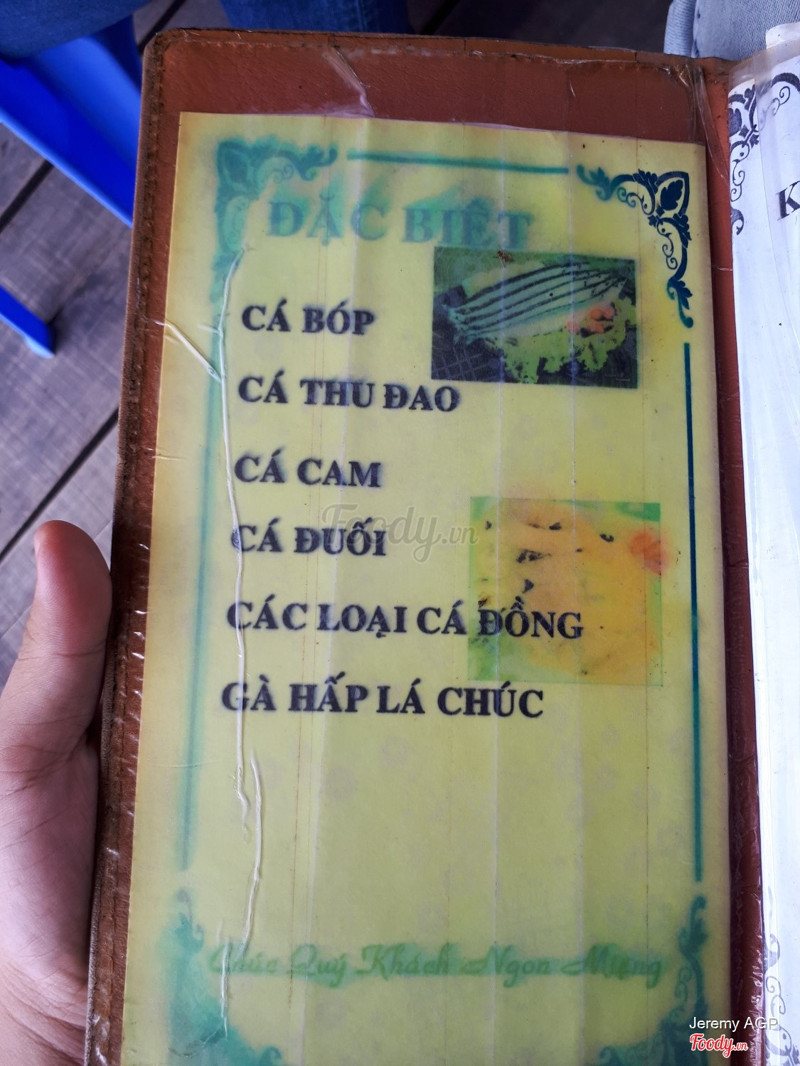 ĐẶC BIỆT
CÁ BÓP
CÁ THU ĐAO
CÁ CAM
CÁ ĐUỐI
CÁC LOẠI CÁ ĐỒNG
GÀ HẤP LÁ CHÚC
Chúc Quý Khách Ngon Miệng
K
Foody.vn
Jeremy AGP
Foody.vn